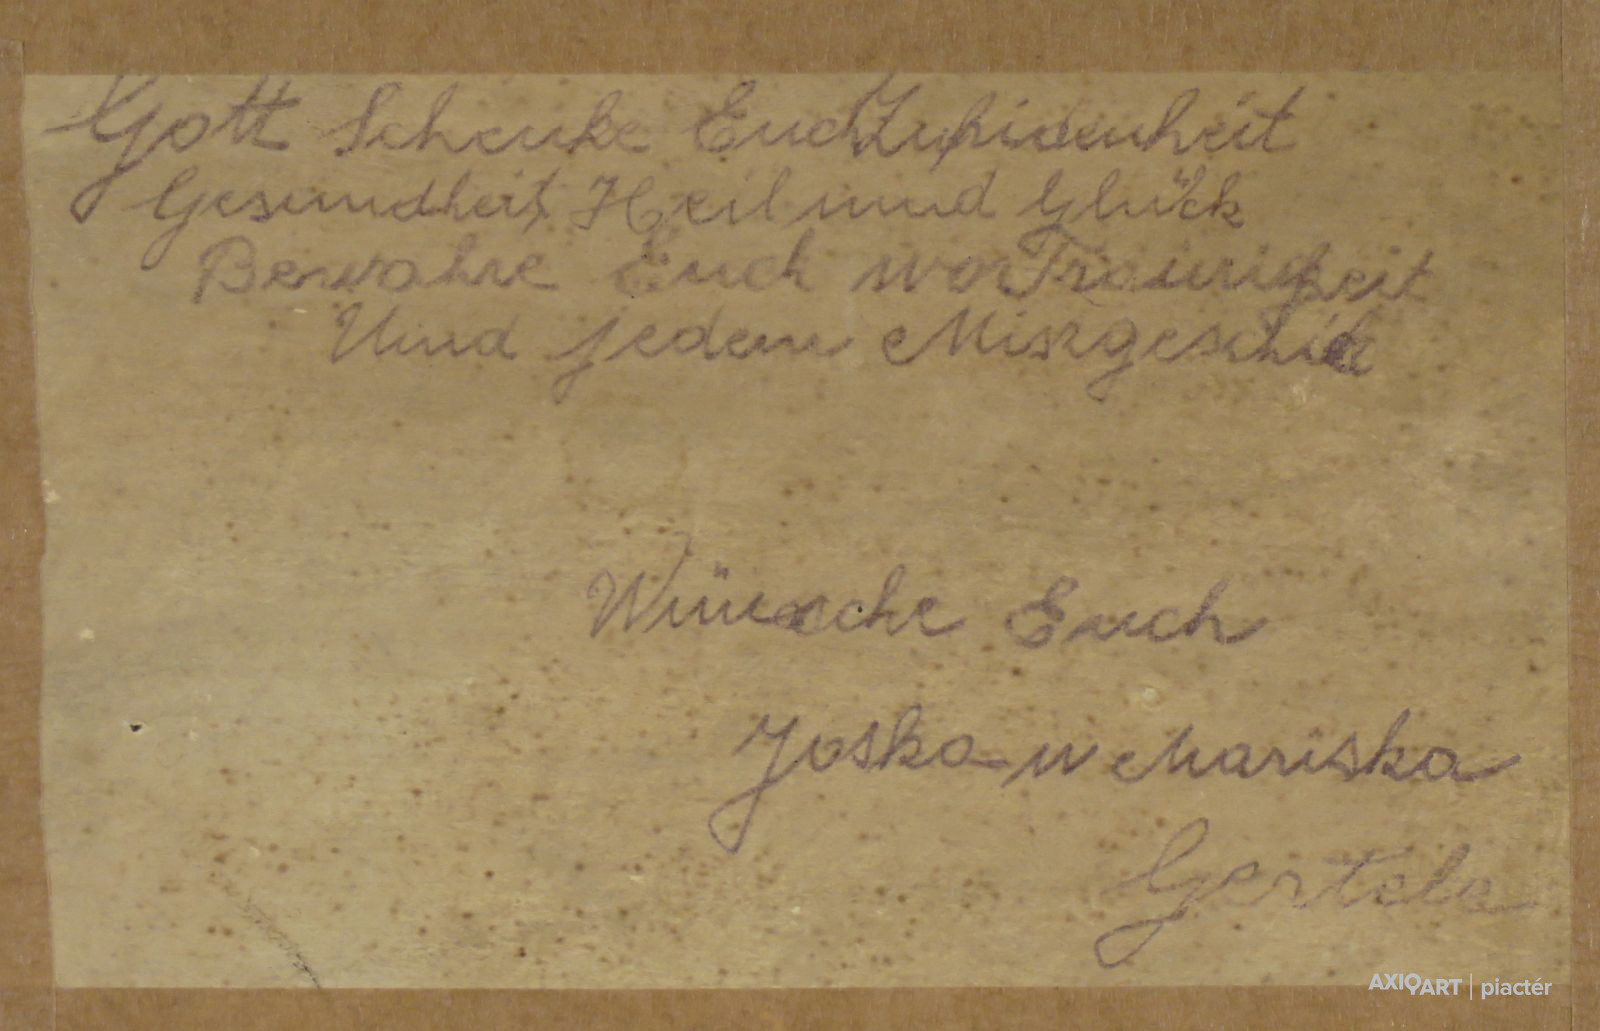 Gott Schenke Euch Zufridenheit
Gesundheit, Heil und Glück
Bewahre Euch wor Traurigkeit
Und jedem Miszgeschick
Wünsche Euch
Joska u Mariska
AXIOART | piactér